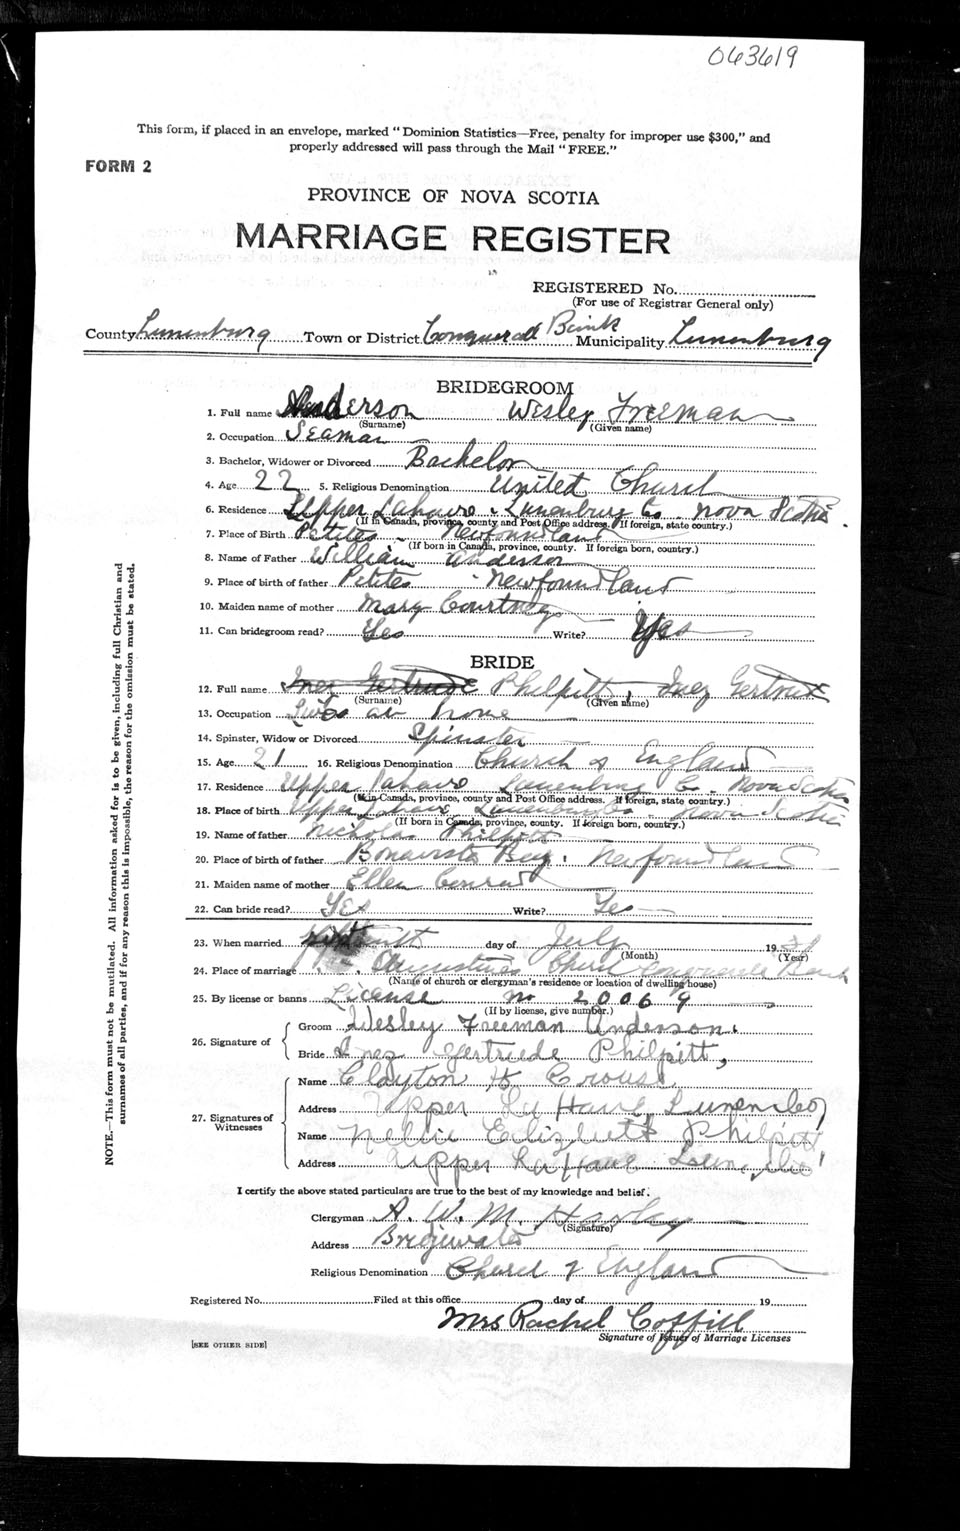 063619
This form, if placed in an envelope, marked "Dominion Statistics—Free, penalty for improper use $300," and
properly addressed will pass through the Mail "FREE."
FORM 2
PROVINCE OF NOVA SCOTIA
MARRIAGE REGISTER
REGISTERED No.
(For use of Registrar General only)
County Lunenburg Town or District Conquerall Bank Municipality Lunenburg
BRIDEGROOM
1. Full name Anderson Wesley Freeman
(Surname) (Given name)
2. Occupation Seaman
3. Bachelor, Widower or Divorced Bachelor
4. Age 22 5. Religious Denomination United Church
6. Residence Upper Lahave Lunenburg Co Nova Scotia
(If in Canada, province, county and Post Office address. If foreign, state country.)
7. Place of Birth Petites Newfoundland
(If born in Canada, province, county. If foreign born, country.)
8. Name of Father William Anderson
9. Place of birth of father Petites Newfoundland
10. Maiden name of mother Mary Courtney
11. Can bridegroom read? Yes Write? Yes
BRIDE
12. Full name Inez Gertrude Philpitt, Inez Gertrude
(Surname) (Given name)
13. Occupation Lives at home
14. Spinster, Widow or Divorced Spinster
15. Age 21 16. Religious Denomination Church of England
17. Residence Upper Lahave Lunenburg Co. Nova Scotia
(If in Canada, province, county and Post Office address. If foreign, state country.)
18. Place of birth Upper Lahave Lunenburg Co. Nova Scotia
(If born in Canada, province, county. If foreign born, country.)
19. Name of father Nicholas Philpitt
20. Place of birth of father Bonavista Bay, Newfoundland
21. Maiden name of mother Ellen Conrad
22. Can bride read? Yes Write? Yes
23. When married day of July 19
(Month) (Year)
24. Place of marriage Conquerall Bank
(Name of church or clergyman's residence or location of dwelling house)
25. By license or banns License no 20069
(If by license, give number.)
26. Signature of
Groom Wesley Freeman Anderson
Bride Inez Gertrude Philpitt,
27. Signatures of Witnesses
Name Clayton H Crouse
Address Upper LaHave, Lunen, Co,
Name Nellie Elizabeth Philpitt
Address Upper LaHave Lun,
I certify the above stated particulars are true to the best of my knowledge and belief.
Clergyman A. W. M. Harley
(Signature)
Address Bridgewater
Religious Denomination Church of England
Registered No. Filed at this office day of 19
Mrs Rachel Coffill
Signature of Issuer of Marriage Licenses
[SEE OTHER SIDE]
NOTE.—This form must not be mutilated. All information asked for is to be given, including full Christian and
surnames of all parties, and if for any reason this is impossible, the reason for the omission must be stated.